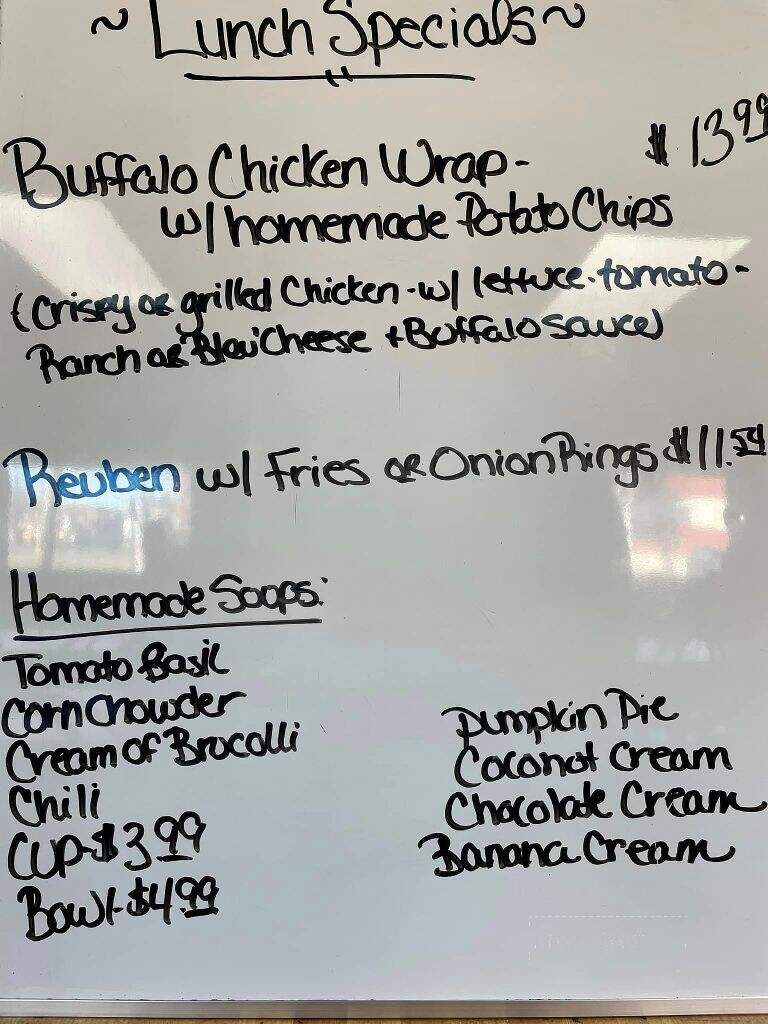 ~ Lunch Specials ~
Buffalo Chicken Wrap - $13.99
w/ homemade Potato Chips
(Crispy or grilled Chicken - w/ lettuce - tomato -
Ranch or Bleu Cheese + Buffalo sauce)
Reuben w/ Fries or Onion Rings $11.54
Homemade Soups:
Tomato Basil
Corn Chowder
Cream of Brocolli
Chili
Cup - $3.99
Bowl - $4.99
Pumpkin Pie
Coconut Cream
Chocolate Cream
Banana Cream